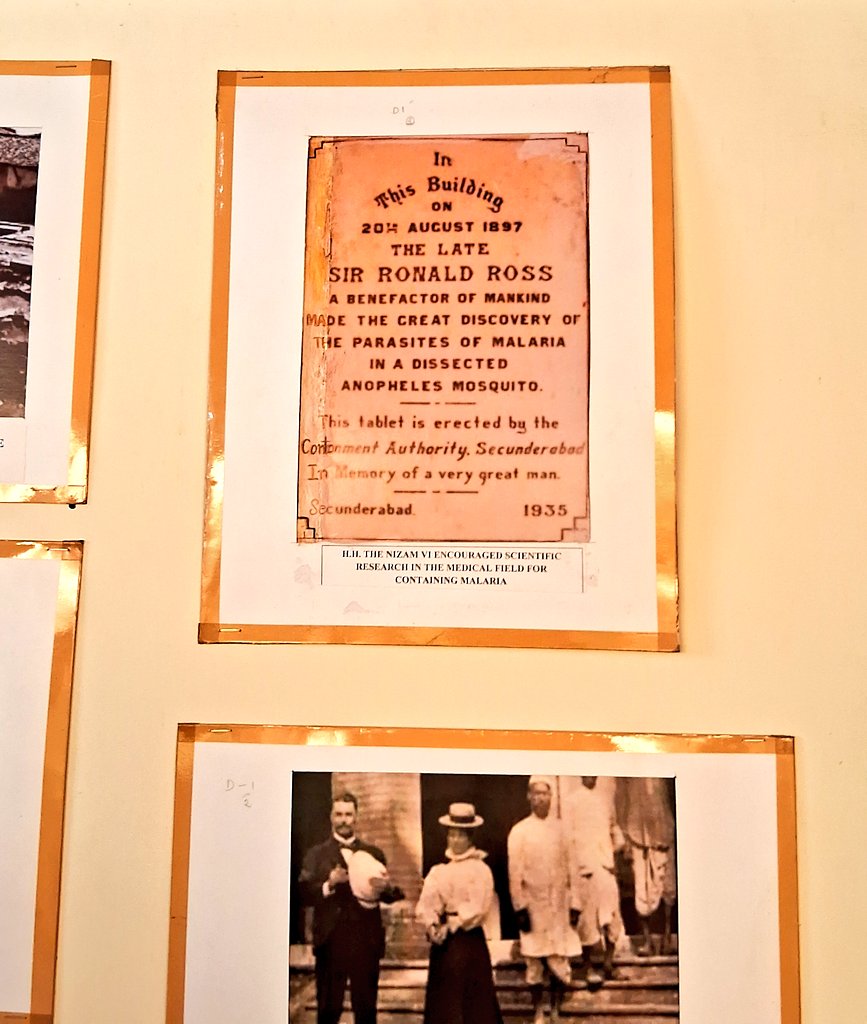 D1
In
This Building
ON
20TH AUGUST 1897
THE LATE
SIR RONALD ROSS
A BENEFACTOR OF MANKIND
MADE THE GREAT DISCOVERY OF
THE PARASITES OF MALARIA
IN A DISSECTED
ANOPHELES MOSQUITO.
This tablet is erected by the
Contonment Authority, Secunderabad
In Memory of a very great man.
Secunderabad. 1935
H.H. THE NIZAM VI ENCOURAGED SCIENTIFIC
RESEARCH IN THE MEDICAL FIELD FOR
CONTAINING MALARIA
E
D-1
2